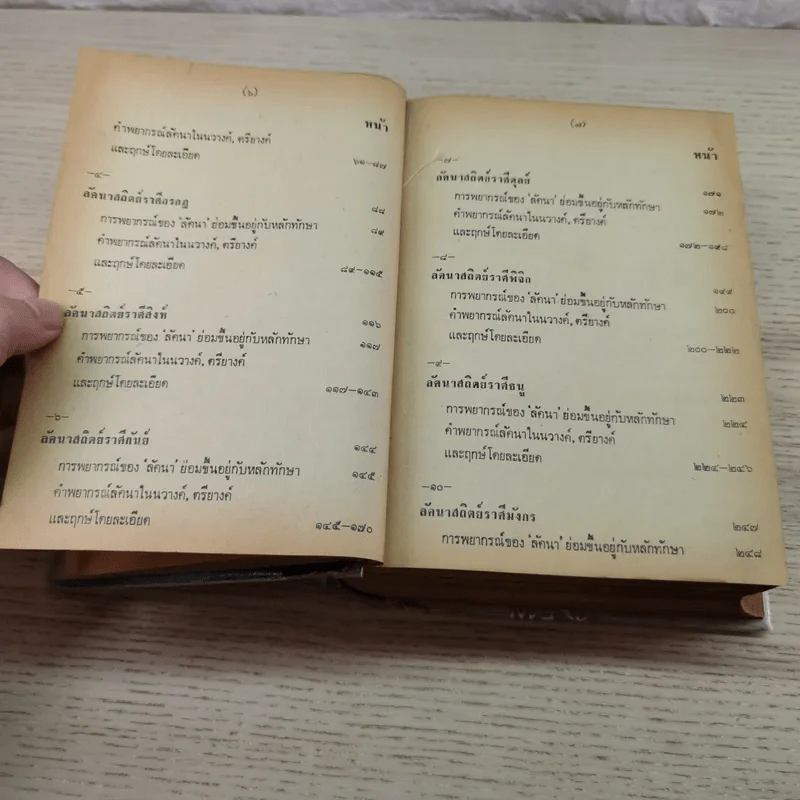 (๖)
หน้า
คำพยากรณ์ลัคนาในนวางค์, ตรียางค์
และฤกษ์โดยละเอียด ๖๑–๘๗
–๔–
ลัคนาสถิตย์ราศีกรกฎ ๘๘
การพยากรณ์ของ 'ลัคนา' ย่อมขึ้นอยู่กับหลักทักษา ๘๙
คำพยากรณ์ลัคนาในนวางค์, ตรียางค์
และฤกษ์โดยละเอียด ๘๙–๑๑๕
–๕–
ลัคนาสถิตย์ราศีสิงห์ ๑๑๖
การพยากรณ์ของ 'ลัคนา' ย่อมขึ้นอยู่กับหลักทักษา ๑๑๗
คำพยากรณ์ลัคนาในนวางค์, ตรียางค์
และฤกษ์โดยละเอียด ๑๑๗–๑๔๓
–๖–
ลัคนาสถิตย์ราศีกันย์ ๑๔๔
การพยากรณ์ของ 'ลัคนา' ย่อมขึ้นอยู่กับหลักทักษา ๑๔๕
คำพยากรณ์ลัคนาในนวางค์, ตรียางค์
และฤกษ์โดยละเอียด ๑๔๕–๑๗๐
(๗)
หน้า
–๗–
ลัคนาสถิตย์ราศีตุลย์ ๑๗๑
การพยากรณ์ของ 'ลัคนา' ย่อมขึ้นอยู่กับหลักทักษา ๑๗๒
คำพยากรณ์ลัคนาในนวางค์, ตรียางค์
และฤกษ์โดยละเอียด ๑๗๒–๑๙๘
–๘–
ลัคนาสถิตย์ราศีพิจิก ๑๙๙
การพยากรณ์ของ 'ลัคนา' ย่อมขึ้นอยู่กับหลักทักษา ๒๐๐
คำพยากรณ์ลัคนาในนวางค์, ตรียางค์
และฤกษ์โดยละเอียด ๒๐๐–๒๒๒
–๙–
ลัคนาสถิตย์ราศีธนู ๒๒๓
การพยากรณ์ของ 'ลัคนา' ย่อมขึ้นอยู่กับหลักทักษา ๒๒๔
คำพยากรณ์ลัคนาในนวางค์, ตรียางค์
และฤกษ์โดยละเอียด ๒๒๔–๒๔๖
–๑๐–
ลัคนาสถิตย์ราศีมังกร ๒๔๗
การพยากรณ์ของ 'ลัคนา' ย่อมขึ้นอยู่กับหลักทักษา ๒๔๘